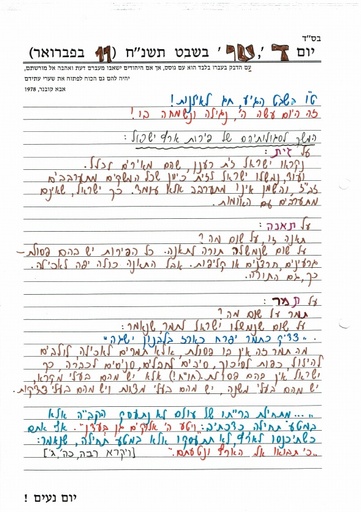 בס"ד
יום ד', בשבט תשנ"ח (11 בפברואר)
עם הדבק בעברו בלבד הוא עם גוסס, אך אם היהודים ישאבו מעברם דעת ואהבה אל מורשתם,
יהיה להם גם הכוח לפתוח את שערי עתידם
אבא קובנר, 1978
ט"ו בשבט הגיע, חג לאילנות!
זה היום עשה ה', נגילה ונשמחה בו!
המשך לסגולותיהם של פירות ארץ ישראל:
על זית:
נקראו ישראל זית רענן, שהם מאירים לכולם.
ועוד, נמשלו ישראל לזית, כיוון שכל המשקים מתערבבים
זב"ז, והשמן אינו מתערבב אלא עומד. כך ישראל, שאינם
מתערבים עם האומות.
על תאנה:
תאנה זו, על שום מה?
על שום שנמשלה תורה לתאנה. כל הפירות יש בהם פסולת-
גרעינים, חרצנים או קליפות. אבל התאנה כולה יפה לאכילה.
כך, גם התורה.
על תמר:
תמר על שום מה?
על שום שנמשלו ישראל לתמר, שנאמר:
"צדיק כתמר יפרח כארז בלבנון ישגה"
מה תמר זה אין בו פסולת, אלא תמרים לאכילה, לולבים
להילול, כפות לסיכוך, סיבים לחבלים, סנסנים לכברה, כך
ישראל אין בהם פסולת אלא יש מהם בעלי מקרא,
יש מהם בעלי משנה, יש מהם בעלי מצוות ויש מהם בעלי צדקות.
"... מתחילת ברייתו של עולם לא נתעסק הקב"ה אלא
במטע תחילה כדכתיב: ויטע ה' אלוקים גן בעדן". אף אתם
כשתיכנסו לארץ לא תתעסקו אלא במטע תחילה, שנאמר:
"כי תבואו אל הארץ ונטעתם." [ויקרא רבה, כה, ג']
יום נעים !